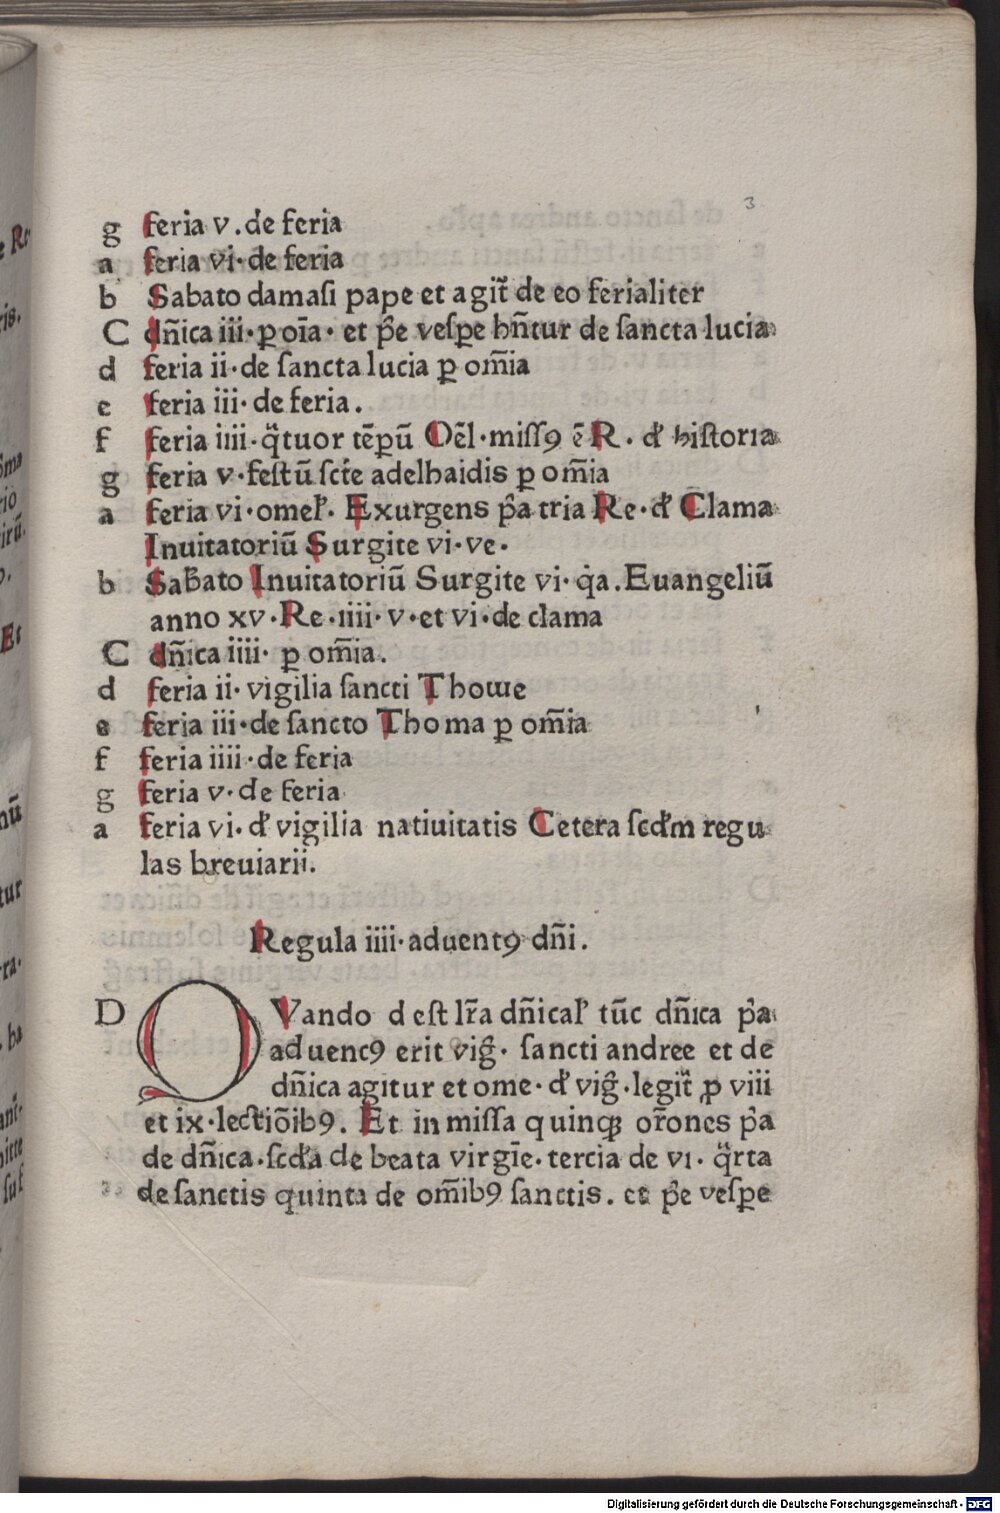 3
g feria v. de feria
a feria vi· de feria
b Sabato damaſi pape et agit̃ de eo ferialiter
C dñica iii· p oīa· et p̃e veſpe hñtur de ſancta lucia
d feria ii· de ſancta lucia p om̄ia
e feria iii· de feria.
f feria iiii· q̃tuor tēpū Oēl· miſſ9 ē R. d' hiſtoria
g feria v· feſtū ſct̄e adelhaidis p om̄ia
a feria vi· omel'. Exurgens p̃a tria Re· d' Clama
Inuitatoriū Surgite vi· ve·
b Sab̃ato Inuitatoriū Surgite vi· q̃a. Euangeliū
anno xv· Re· iiii· v· et vi· de clama
C dñica iiii· p om̄ia.
d feria ii· vigilia ſancti Thowe
e feria iii· de ſancto Thoma p om̄ia
f feria iiii· de feria
g feria v· de feria
a feria vi. d' vigilia natiuitatis Cetera ſcd'm regu
las breuiarii.
Regula iiii· aduent9 dñi.
D QVando d eſt lr̃a dñical' tūc dñica p̃a
aduenc9 erit vig̃· ſancti andree et de
dñica agitur et ome· d' vig̃· legit̃ p viii
et ix· lectiōib9. Et in miſſa quinqꝫ or̃ones p̃a
de dñica· ſcd'a de beata virgīe· tercia de vi· q̃rta
de ſanctis quinta de om̄ib9 ſanctis. et p̃e veſpe
Digitalisierung gefördert durch die Deutsche Forschungsgemeinschaft - DFG